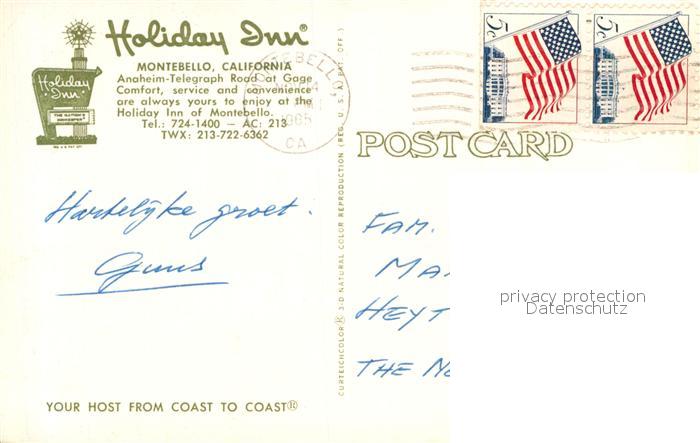 Holiday Inn®
MONTEBELLO, CALIFORNIA
Anaheim-Telegraph Road at Gage
Comfort, service and convenience
are always yours to enjoy at the
Holiday Inn of Montebello.
Tel.: 724-1400 — AC: 213
TWX: 213-722-6362
Holiday
Inn®
THE NATION'S
INNKEEPER
MONTEBELLO
1965
CA
5c
5c
POST CARD
Hartelijke groet.
Guus
CURTEICHCOLOR® 3-D NATURAL COLOR REPRODUCTION (REG. U.S.A. PAT. OFF.)
FAM.
MA
HEYT
THE N
privacy protection
Datenschutz
YOUR HOST FROM COAST TO COAST®